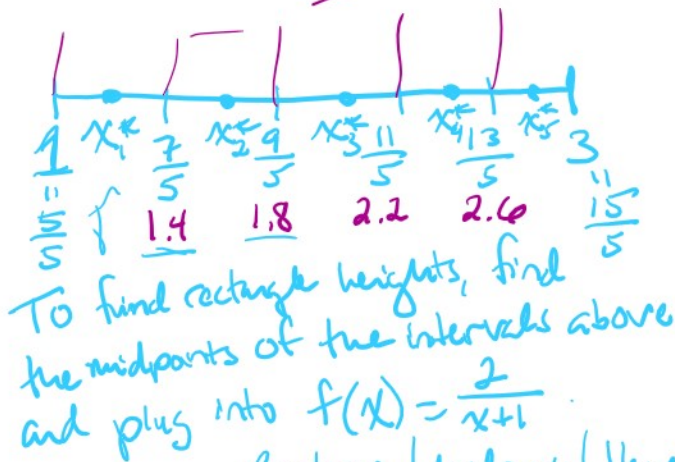 1 x₁* 7/5 x₂* 9/5 x₃* 11/5 x₄* 13/5 x₅* 3
= 5/5 1.4 1.8 2.2 2.6 = 15/5
To find rectangle heights, find
the midpoints of the intervals above
and plug into f(x) = 2/(x+1).